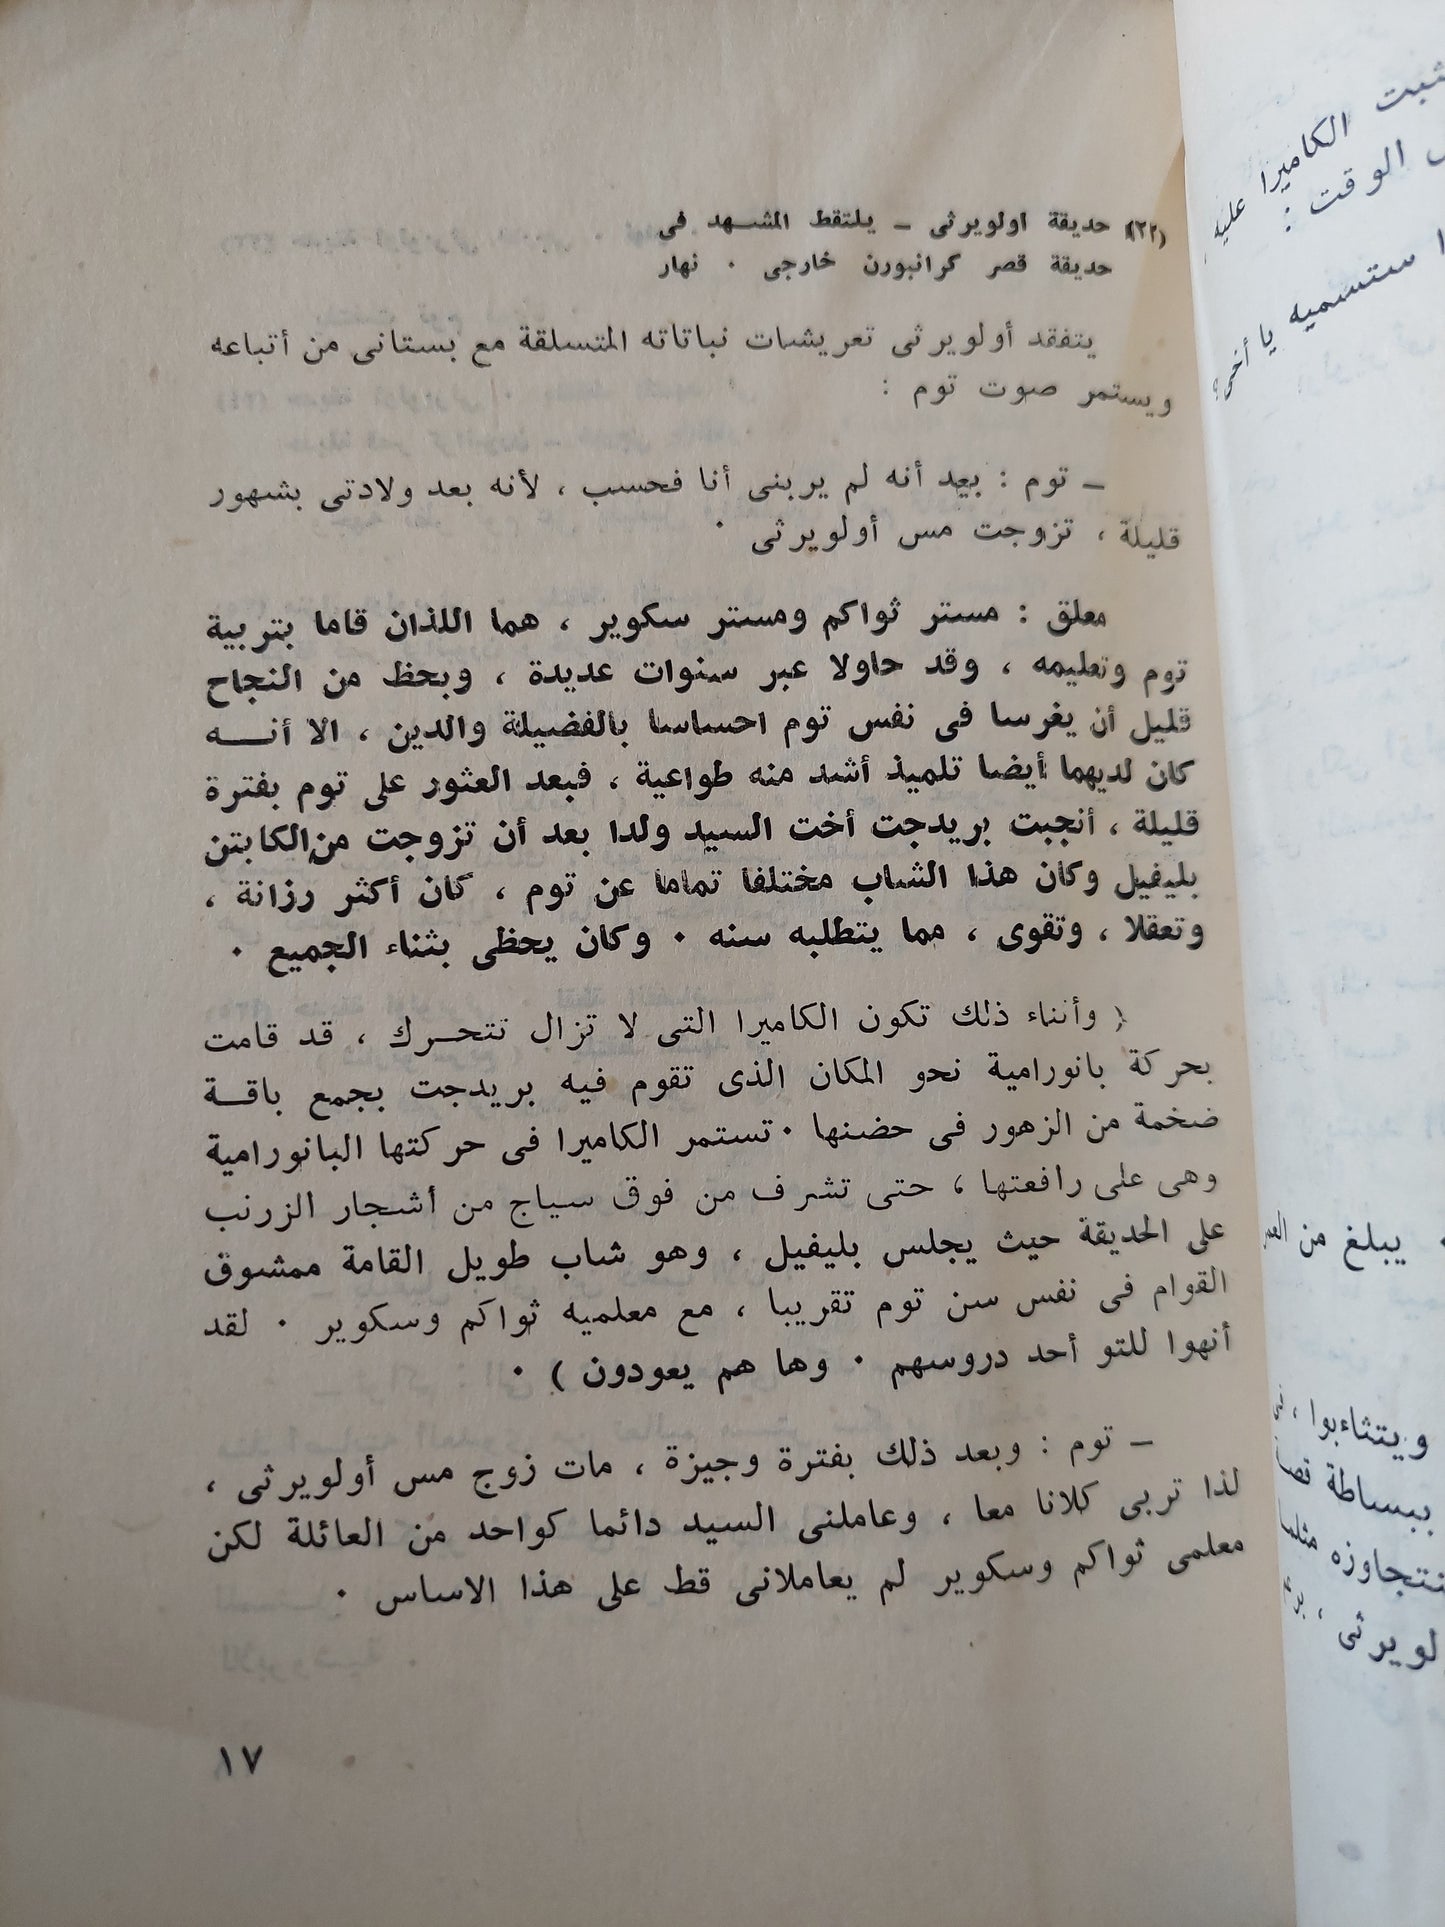 (٢٢) حديقة اولويرثى – يلتقط المشهد فى
حديقة قصر كرانبورن خارجى · نهار
يتفقد أولويرثى تعريشات نباتاته المتسلقة مع بستانى من أتباعه
ويستمر صوت توم :
– توم : بيد أنه لم يربنى أنا فحسب ، لأنه بعد ولادتى بشهور
قليلة ، تزوجت مس أولويرثى ·
معلق : مستر ثواكم ومستر سكوير ، هما اللذان قاما بتربية
توم وتعليمه ، وقد حاولا عبر سنوات عديدة ، وبحظ من النجاح
قليل أن يغرسا فى نفس توم احساسا بالفضيلة والدين ، الا أنه
كان لديهما أيضا تلميذ أشد منه طواعية ، فبعد العثور على توم بفترة
قليلة ، أنجبت بريدجت أخت السيد ولدا بعد أن تزوجت من الكابتن
بليفيل وكان هذا الشاب مختلفا تماما عن توم ، كان أكثر رزانة ،
وتعقلا ، وتقوى ، مما يتطلبه سنه · وكان يحظى بثناء الجميع ·
( وأثناء ذلك تكون الكاميرا التى لا تزال تتحرك ، قد قامت
بحركة بانورامية نحو المكان الذى تقوم فيه بريدجت بجمع باقة
ضخمة من الزهور فى حضنها · تستمر الكاميرا فى حركتها البانورامية
وهى على رافعتها ، حتى تشرف من فوق سياج من أشجار الزرنب
على الحديقة حيث يجلس بليفيل ، وهو شاب طويل القامة ممشوق
القوام فى نفس سن توم تقريبا ، مع معلميه ثواكم وسكوير · لقد
أنهوا للتو أحد دروسهم · وها هم يعودون ) ·
– توم : وبعد ذلك بفترة وجيزة ، مات زوج مس أولويرثى ،
لذا تربى كلانا معا ، وعاملنى السيد دائما كواحد من العائلة لكن
معلمى ثواكم وسكوير لم يعاملانى قط على هذا الاساس ·
١٧
ثبت الكاميرا عليه
الوقت :
ستسميه يا أخى؟
· يبلغ من العمر
ويتثاءبوا ،
ببساطة
نتجاوزه مثلما
لويرثى ،